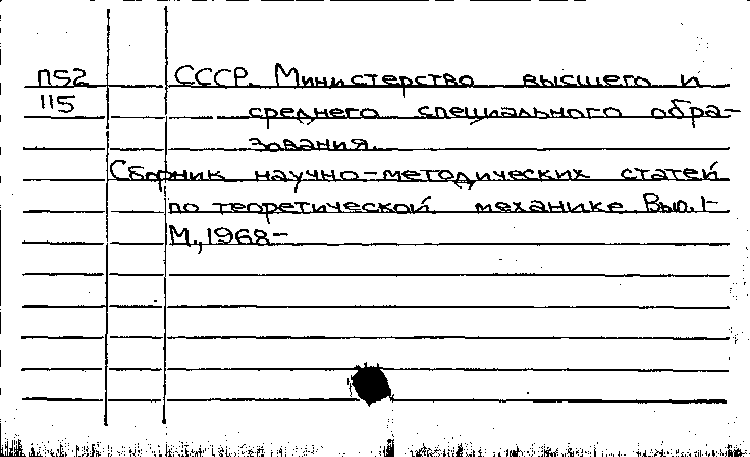 П52 СССР. Министерство высшего и
115 среднего специального обра-
зования.
Сборник научно-методических статей
по теоретической механике. Вып. 1-
М., 1968-